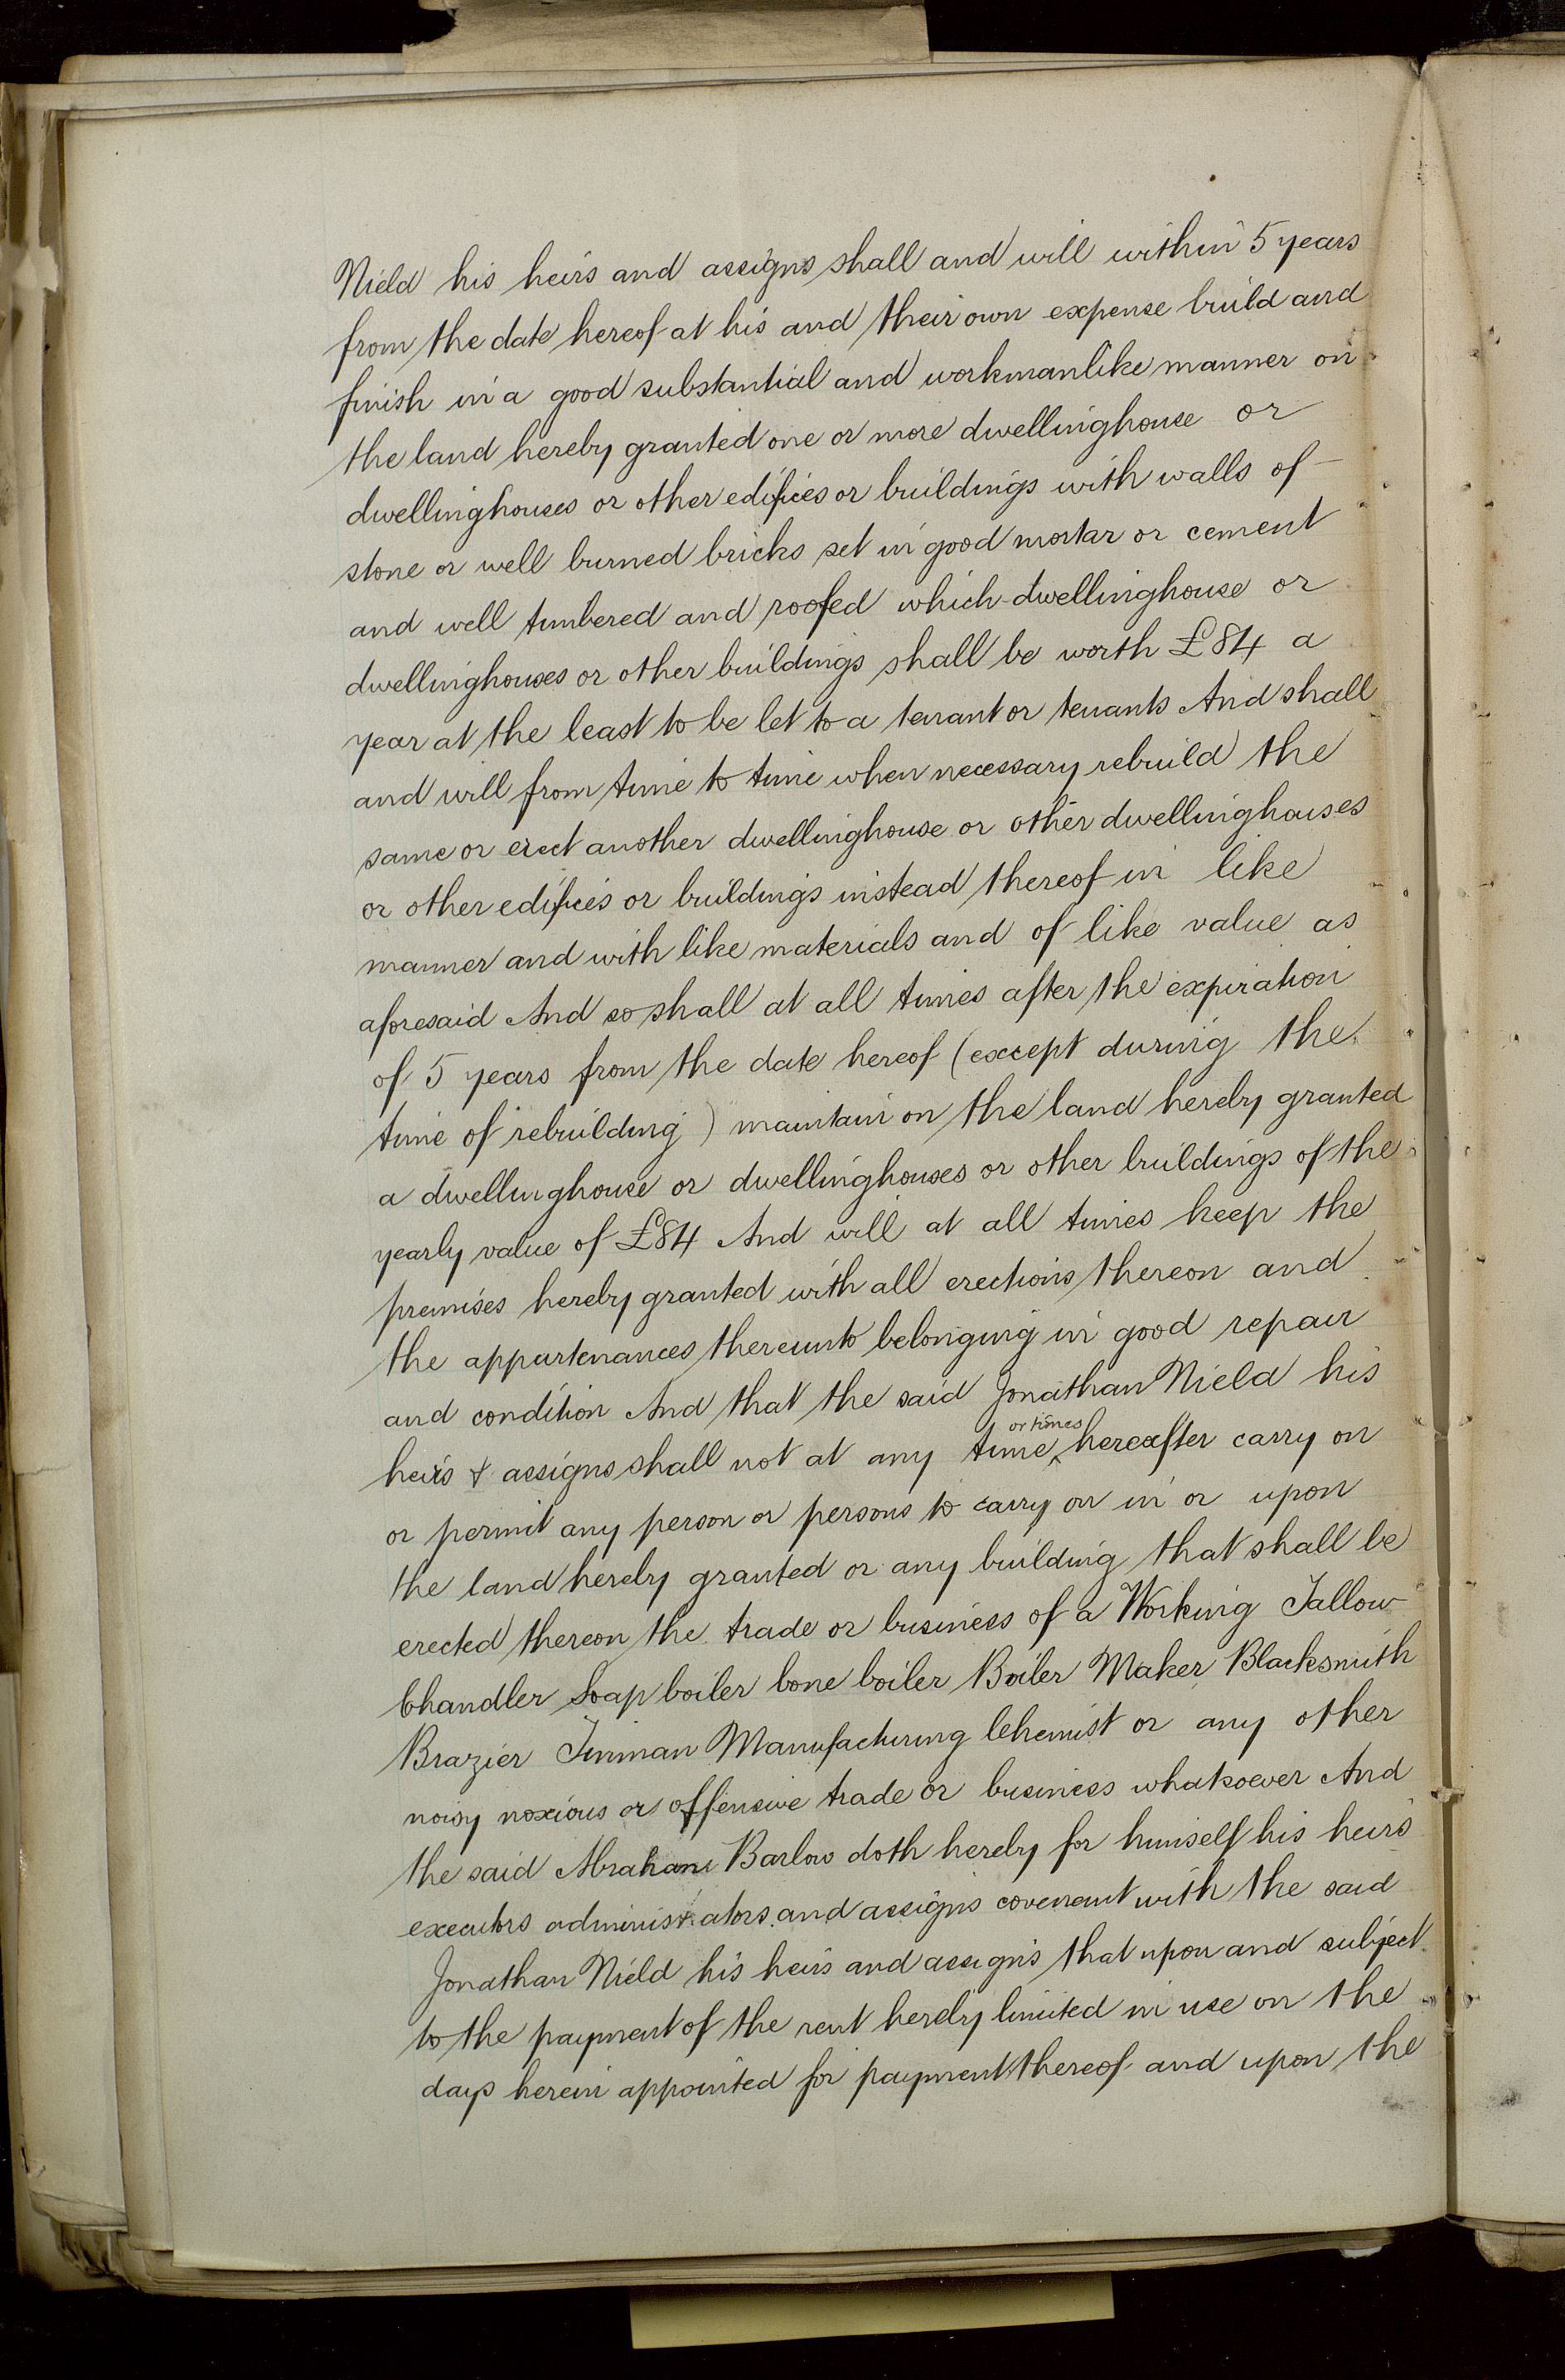 Nield his heirs and assigns shall and will within 5 years
from the date hereof at his and their own expense build and
finish in a good substantial and workmanlike manner on
the land hereby granted one or more dwellinghouse or
dwellinghouses or other edifices or buildings with walls of
stone or well burned bricks set in good mortar or cement
and well timbered and roofed which dwellinghouse or
dwellinghouses or other buildings shall be worth £84 a
year at the least to be let to a tenant or tenants And shall
and will from time to time when necessary rebuild the
same or erect another dwellinghouse or other dwellinghouses
or other edifices or buildings instead thereof in like
manner and with like materials and of like value as
aforesaid And so shall at all times after the expiration
of 5 years from the date hereof (except during the
time of rebuilding) maintain on the land hereby granted
a dwellinghouse or dwellinghouses or other buildings of the
yearly value of £84 And will at all times keep the
premises hereby granted with all erections thereon and
the appurtenances thereunto belonging in good repair
and condition And that the said Jonathan Nield his
heirs & assigns shall not at any time or times hereafter carry on
or permit any person or persons to carry on in or upon
the land hereby granted or any building that shall be
erected thereon the trade or business of a Working Tallow
Chandler Soap boiler bone boiler Boiler Maker Blacksmith
Brazier Tinman Manufacturing Chemist or any other
noisy noxious or offensive trade or business whatsoever And
the said Abraham Barlow doth hereby for himself his heirs
executors administrators and assigns covenant with the said
Jonathan Nield his heirs and assigns that upon and subject
to the payment of the rent hereby limited in use on the
days herein appointed for payment thereof and upon the